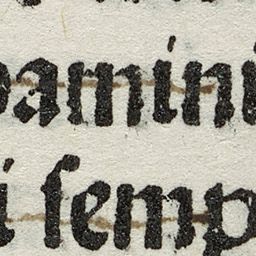 amini
i ſemp